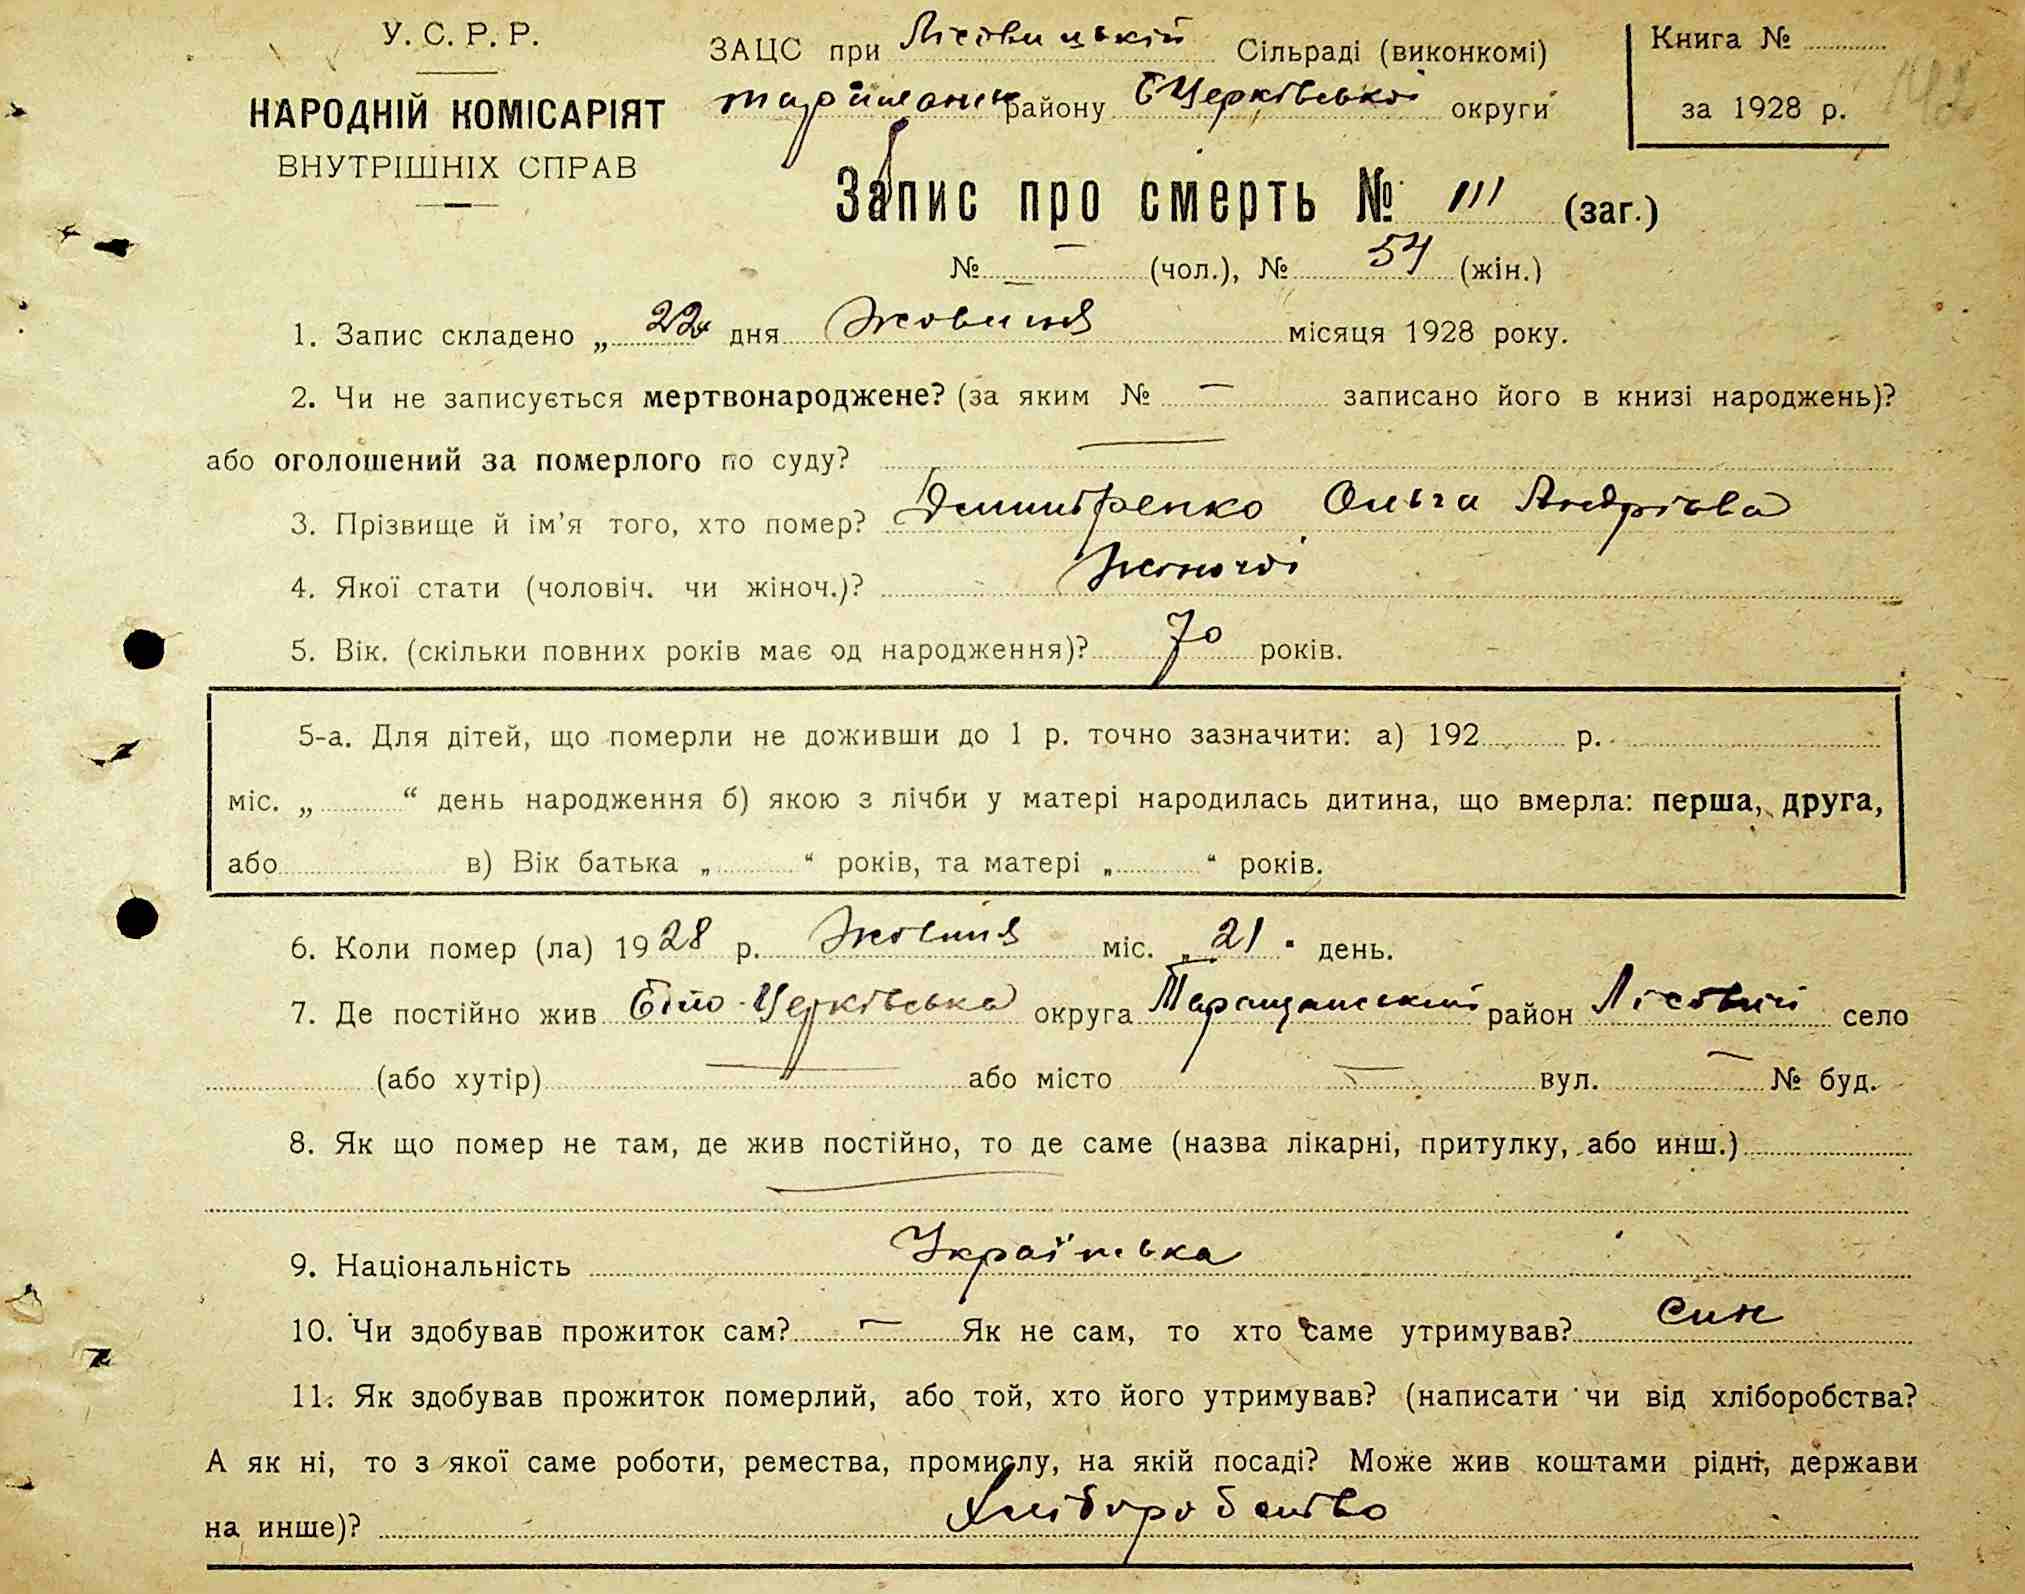 У. С. Р. Р.
НАРОДНІЙ КОМІСАРІЯТ
ВНУТРІШНІХ СПРАВ
ЗАЦС при Лісовицькій Сільраді (виконкомі)
району БЦерківської округи
Книга №
за 1928 р.
Запис про смерть № 111 (заг.)
№ — (чол.), № 54 (жін.)
1. Запис складено „ 22 дня Жовтня місяця 1928 року.
2. Чи не записується мертвонароджене? (за яким № — записано його в книзі народжень)?
або оголошений за померлого по суду? —
3. Прізвище й ім’я того, хто помер? Дмитренко Ольга Андріева
4. Якої стати (чоловіч. чи жіноч.)? Жіночої
5. Вік. (скільки повних років має од народження)? 70 років.
5-а. Для дітей, що померли не доживши до 1 р. точно зазначити: а) 192 р.
міс. „ “ день народження б) якою з лічби у матері народилась дитина, що вмерла: перша, друга,
або в) Вік батька „ “ років, та матері „ “ років.
6. Коли помер (ла) 1928 р. Жовтня міс. „ 21 " день.
7. Де постійно жив Біло-Церківська округа Таращанський район Лісовичі село
(або хутір) — або місто — вул. — № буд.
8. Як що помер не там, де жив постійно, то де саме (назва лікарні, притулку, або инш.)
—
9. Національність Українська
10. Чи здобував прожиток сам? — Як не сам, то хто саме утримував? син
11. Як здобував прожиток померлий, або той, хто його утримував? (написати чи від хліборобства?
А як ні, то з якої саме роботи, ремества, промислу, на якій посаді? Може жив коштами рідні, держави
на инше)? Хліборобство